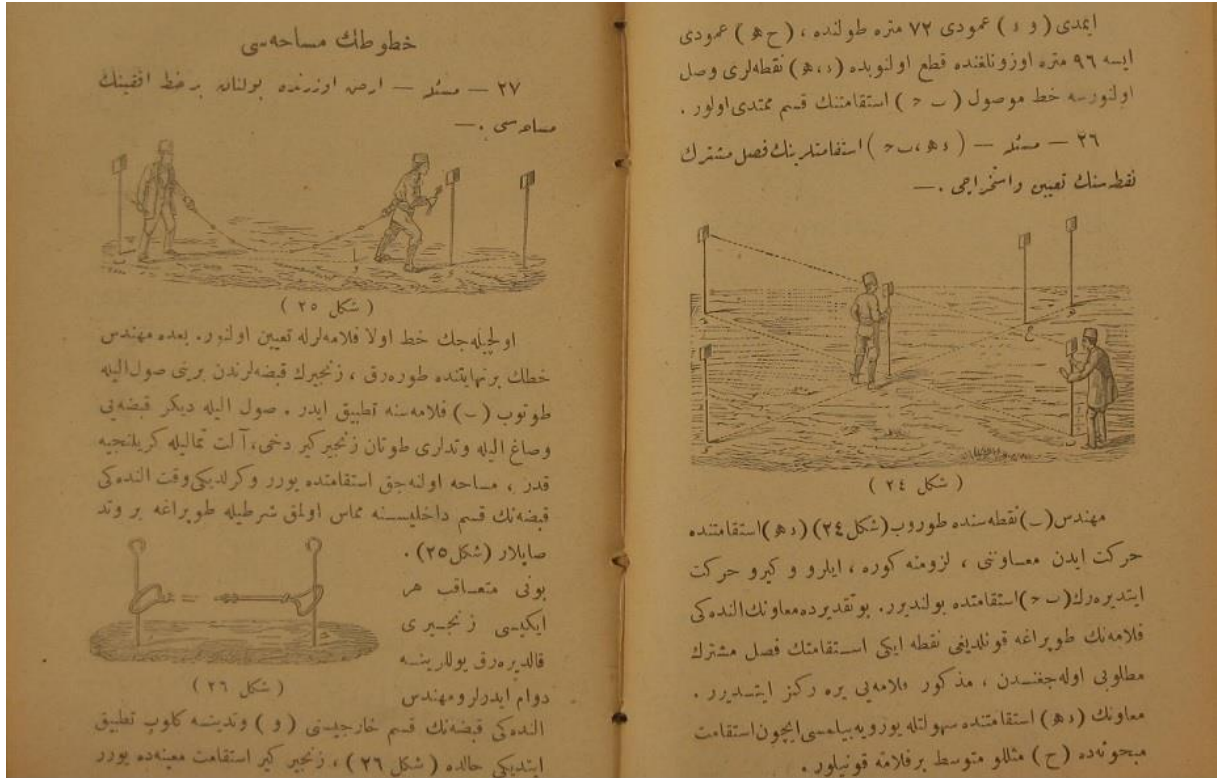 ایمدی ( و د ) عمودی ٧٢ متره طولنده ، ( ح ﻫ ) عمودی
ایسه ٩٦ متره اوزونلغنده قطع اولنوبده ( د ، ﻫ ) نقطه‌لری وصل
اولنورسه خط موصول ( ب ح ) استقامتنك قسم ممتدی اولور .
٢٦ — مسئله — ( د ﻫ ، ب ح ) استقامتلرینك فصل مشترك
نقطه‌سنك تعیین و استخراجی . —
( شكل ٢٤ )
مهندس ( ب ) نقطه‌سنده طوروب ( شكل ٢٤ ) ( د ﻫ ) استقامتنده
حركت ایدن معاوننی ، لزومنه كوره ، ایلرو و كیرو حركت
ایتدیره‌رك ( ب ح ) استقامتنده بولندیرر . بو تقدیرده معاونك النده‌كی
فلامه‌نك طوپراغه قونلدیغی نقطه ایكی استقامتك فصل مشترك
مطلوبی اوله‌جغندن ، مذكور فلامه‌یی یره ركز ایتدیرر .
معاونك ( د ﻫ ) استقامتنده سهولتله یورویه‌بیلمسی ایچون استقامت
مبحوثه‌ده ( ح ) مثللو متوسط بر فلامه قونیلور .
خطوطك مساحه‌سی
٢٧ — مسئله — ارض اوزرنده بولنان بر خط افقینك
مساحه‌سی . —
( شكل ٢٥ )
اولچیله‌جك خط اولا فلامه‌لرله تعیین اولنور . بعده مهندس
خطك بر نهایتنده طوره‌رق ، زنجیرك قبضه‌لرندن برینی صول الیله
طوتوب ( ب ) فلامه‌سنه تطبیق ایدر . صول الیله دیكر قبضه‌یی
وصاغ الیله وتدلری طوتان زنجیركیر دخی ، آلت تمامیله كریلنجیه
قدر ، مساحه اولنه‌جق استقامتده یورر و كرلدیكی وقت النده‌كی
قبضه‌نك قسم داخلیسنه مماس اولمق شرطیله طوپراغه بر وتد
صاپلار ( شكل ٢٥ ) .
بونی متعاقب هر
ایكیسی زنجیری
قالدیره‌رق یوللرینه
دوام ایدرلر و مهندس
( شكل ٢٦ )
النده‌كی قبضه‌نك قسم خارجیسنی ( و ) وتدینه كلوب تطبیق
ایتدیكی حالده ( شكل ٢٦ ) ، زنجیر كیر استقامت معینه‌ده یورر